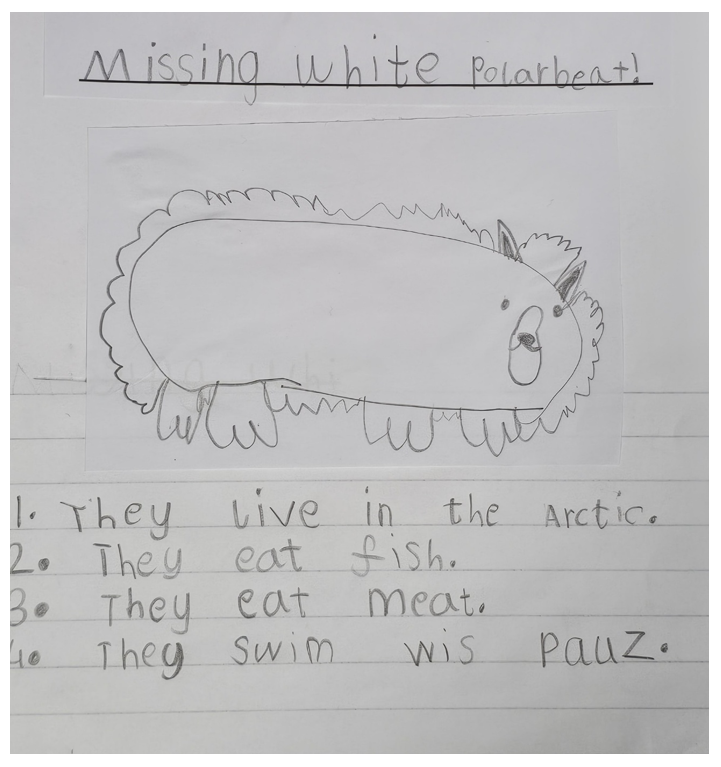 Missing white Polarbeat!
1. They live in the Arctic.
2. They eat fish.
3. They eat meat.
4. They swim wis pauz.